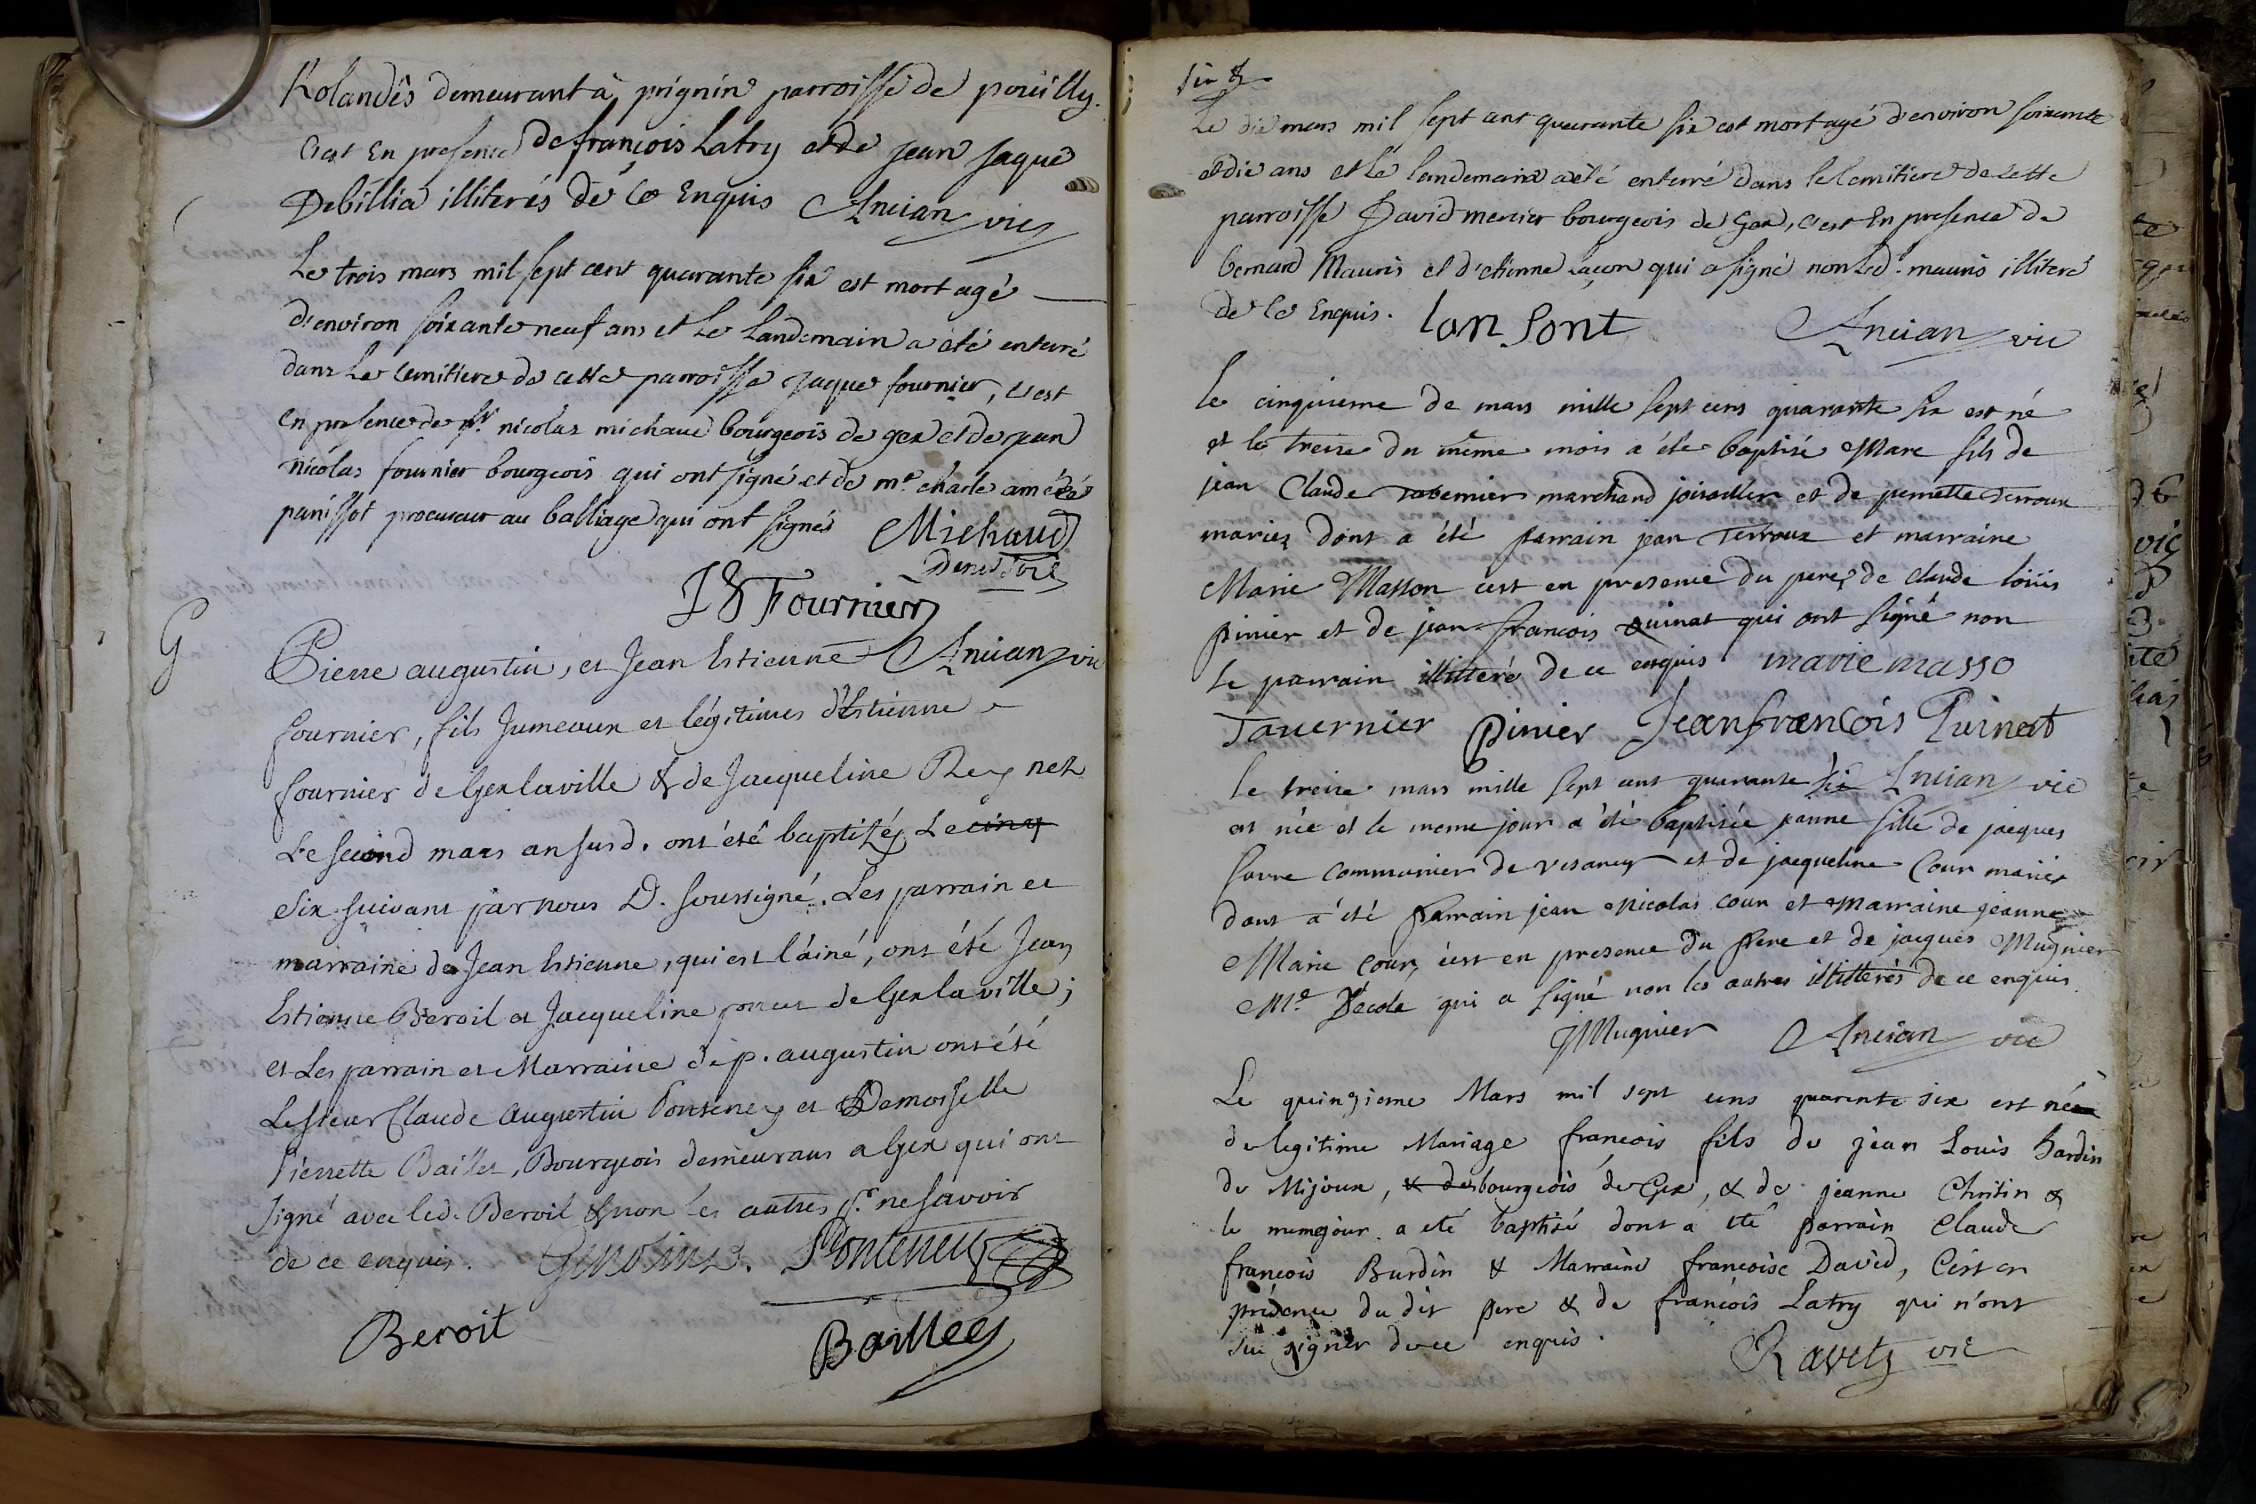 Rolandês demeurant à prignin parroisse de poüilly.
C'est En presence de françois Latry et de jean jaque
Debillia illiterés de Ce Enquis Ancian vic
Le trois mars mil sept cent quarante six est mort agé
d'environ soixante neuf ans et Le Landemain a été enterré
dans Le Cemitiere de cette parroisse jaque fournier, c'est
En presence de sr. nicolas michaud bourgeois de gex et de jean
nicolas fournier bourgeois qui ont signé et de me. charle amédé
panissot procureur au balliage qui ont signés Michaud
J N Fournier
G
Pierre augustin, et Jean Estienne Ancian vic
fournier, fils Jumeaux et légitimes d'Estienne
fournier de Gex laville & de Jacqueline Rey nez
Le second mars an susd. ont été baptizés Le cinq
Six suivant par nous D. soussigné. Les parrain et
marraine de Jean Estienne, qui est l'áiné, ont été Jean
Estienne Beroil et Jacqueline de Gex la ville;
et Les parrain et Marraine de p. augustin ont été
Le sieur Claude augustin Ponteney et Demoiselle
Pierrette Baillet, Bourgeois demeurans a Gex qui ont
signé avec led. Beroil & non les autres pr. ne savoir
de ce enquis. Ponteney
Beroit Baillee
six &
Le die mars mil sept cent quarante six est mort agé d'environ soixante
et die ans et Le Landemain a été enterré dans Le Cemitiere de cette
parroisse David mercier bourgeois de Gex, c'est En presence de
bernard Mauris et d'etienne Laçon qui a signé non Led. mauris illiteré
de Ce Enquis. Ancian vic
Le cinquieme de mars mille sept cens quarante six est né
et le treize du même mois a été baptisé Marc fils de
jean Claude tabernier marchand joiaillier et de pernette terroux
mariez dont a été parrain jean Terroux et marraine
Marie Masson c'est en presence du pere, de claude loüis
pinier et de jean françois quinat qui ont signé non
le parrain illitteré de ce enquis marie masso
Tavernier pinier Jeanfrancois Puinat
le treize mars mille sept cent quarante six Ancian vic
est née et le meme jour a été baptisée jeanne fille de jacques
favre communier de vesancy et de jacqueline Cour mariés
dont a été parrain jean Nicolas cour et marraine jeanne
Marie Cour, c'est en presence du pere et de jacques Mugnier
Me. D'école qui a signé non les autres illitterés de ce enquis
J Mugnier Ancian vic
Le quinzieme Mars mil sept cens quarente six est né
de legitime Mariage francois fils de jean Louis hardin
de Mijoux, & de bourgeois de Gex, & de jeanne Chritin &
le meme jour a eté baptisé dont a eté parrain Claude
françois Burdin & Marraine françoise David, C'est en
présence du dit pere & de françois Latry qui n'ont
su signer de ce enquis. Ravetz vic